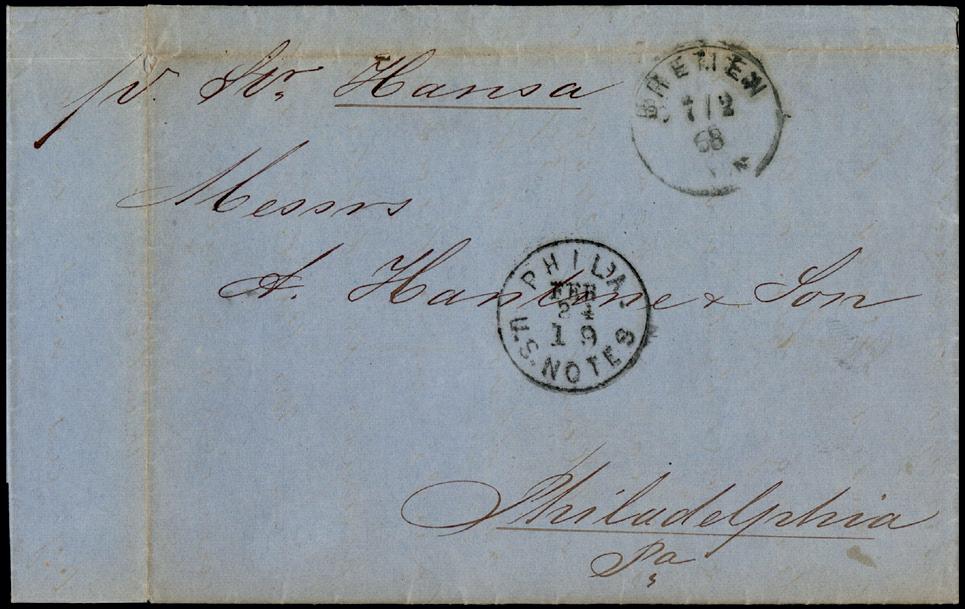 pr. Str. Hansa
BREMEN
7/2
68
Messrs
A. Hantine & Son
PHILA.
FEB
24
19
U.S. NOTES
Philadelphia
Pa